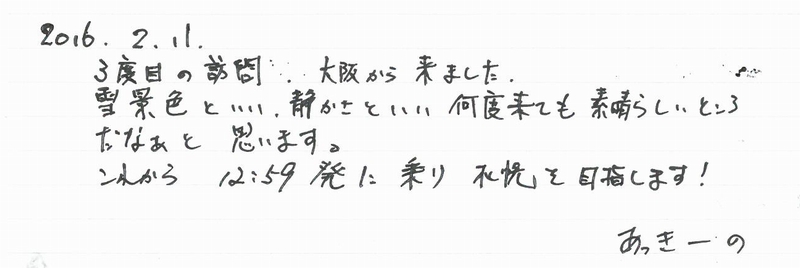 2016. 2. 11.
3度目の訪問．．大阪から来ました．
雪景色といい、静かさといい何度来ても素晴らしいところ
だなぁと思います。
これから 12:59発に乗り札幌を目指します！
あっきーの